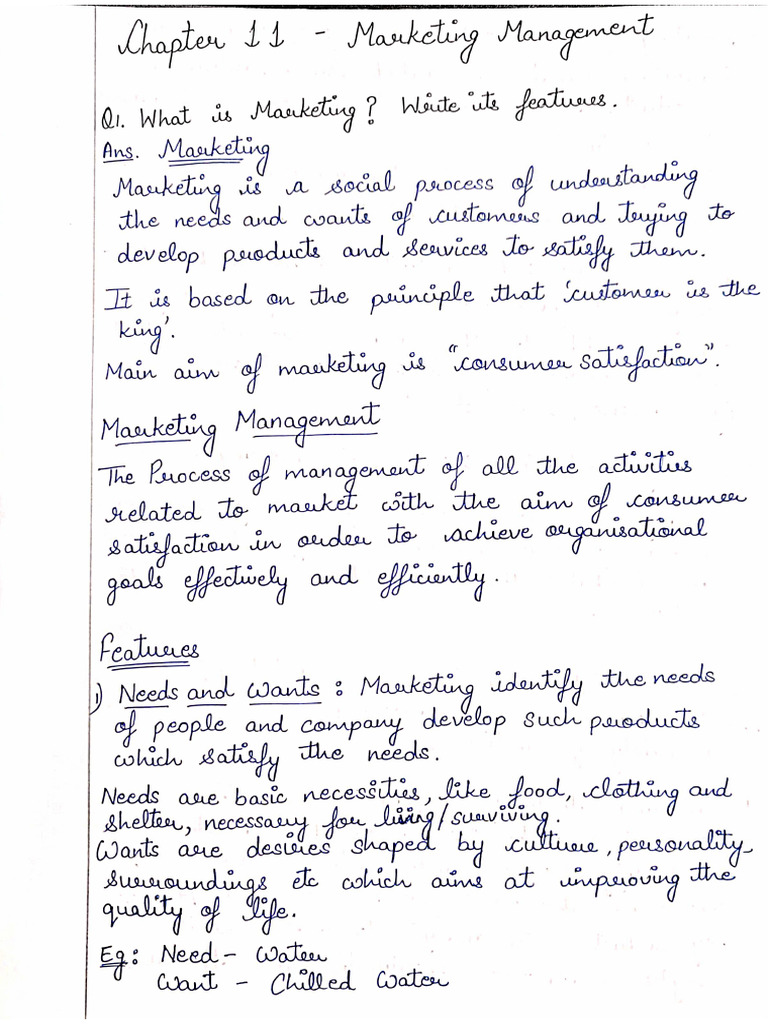 Chapter 11 - Marketing Management
Q1. What is Marketing? Write its features.
Ans. Marketing
Marketing is a social process of understanding
the needs and wants of customers and trying to
develop products and services to satisfy them.
It is based on the principle that 'customer is the
king'.
Main aim of marketing is "consumer satisfaction".
Marketing Management
The Process of management of all the activities
related to market with the aim of consumer
satisfaction in order to achieve organisational
goals effectively and efficiently.
Features
1) Needs and Wants : Marketing identify the needs
of people and company develop such products
which satisfy the needs.
Needs are basic necessities, like food, clothing and
shelter, necessary for living/surviving.
Wants are desires shaped by culture, personality
surroundings etc which aims at improving the
quality of life.
Eg: Need - Water
Want - Chilled Water